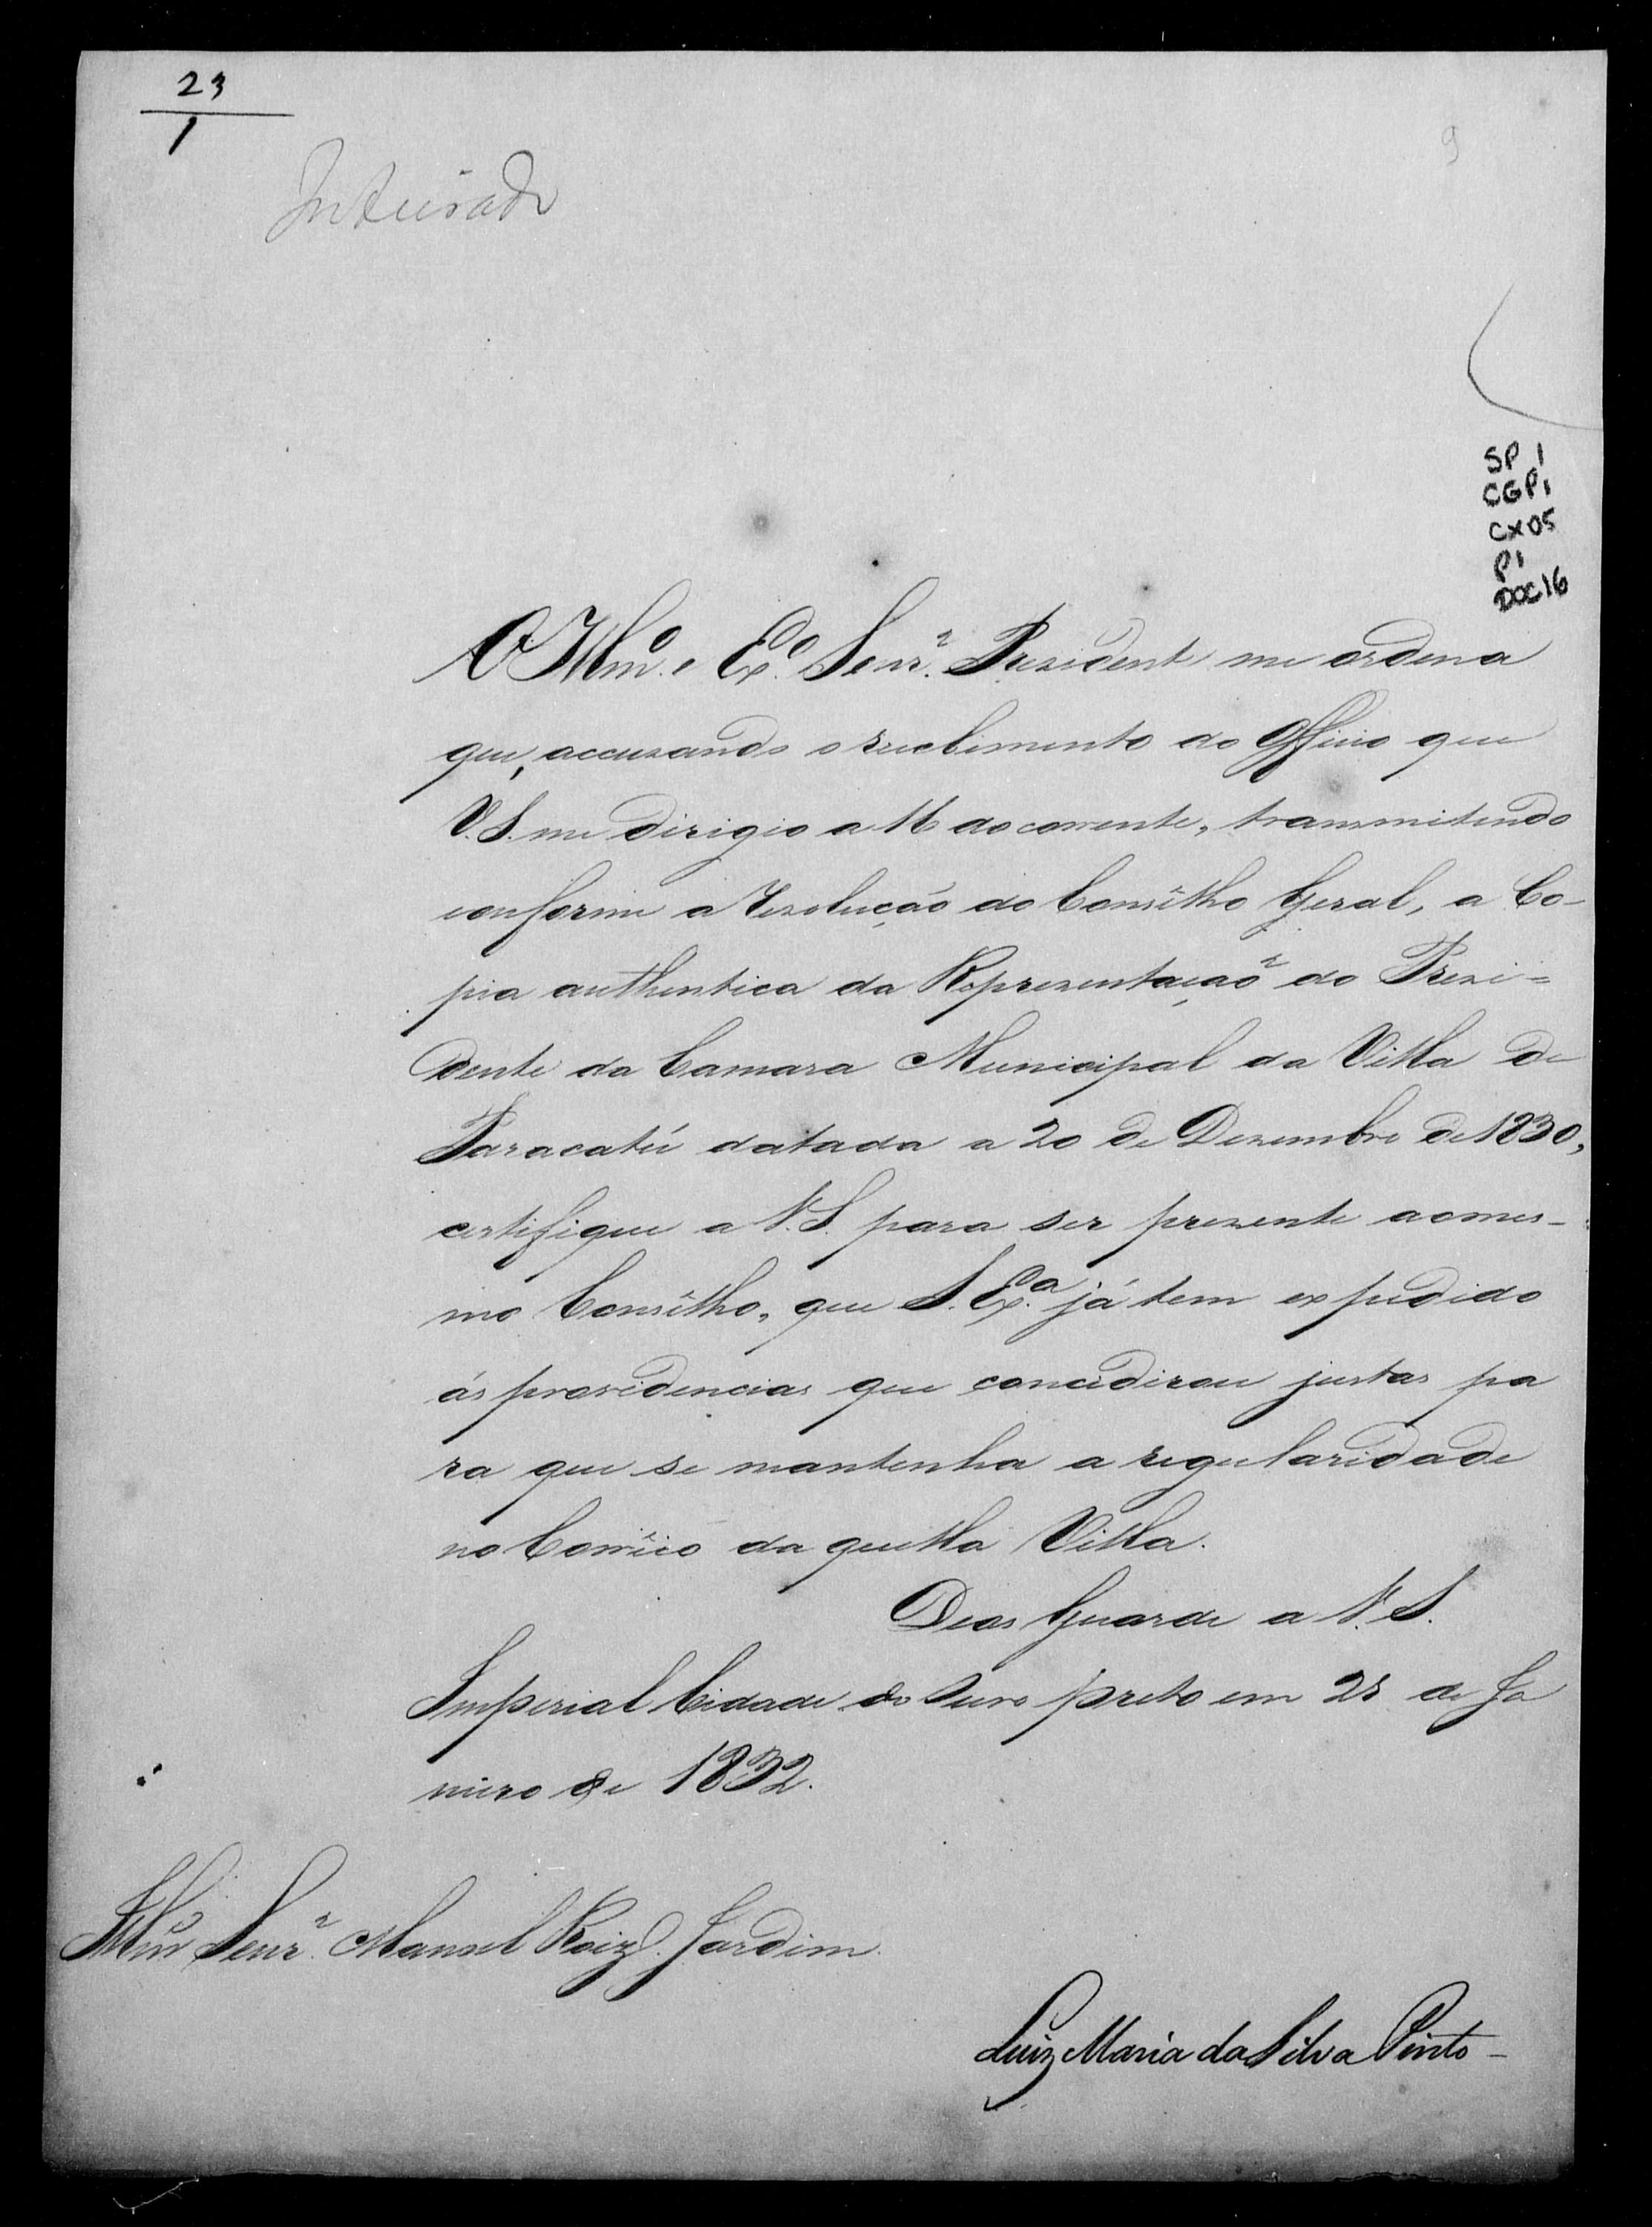 23
1
Inteirado
9
SP 1
CGP1
CX05
P1
DOC 16
O Illmº. e Exº. Senr. Prezidente me ordena
que, accuzando o recebimento do Officio que
V. S. me dirigio a 16 do corrente, transmitindo
conforme a rezolução do Conselho Geral, a Co-
pia authentica da Reprezentação do Prezi=
dente da Camara Municipal da Villa de
Paracatú datada a 20 de Dezembro de 1830,
certifique a V. S. para ser prezente ao mes-
mo Conselho, que S. Exª. já tem expedido
ás providencias que
justas pa
ra que se mantenha a regularidade
no Correio da quella Villa.
Deos Guarde a V. S.
Imperial Cidade do Ouro preto em 23 de Ja
neiro de 1832.
Illmº Senr. Manoel Roiz. Jardim.
Luiz Maria da Silva Pinto -